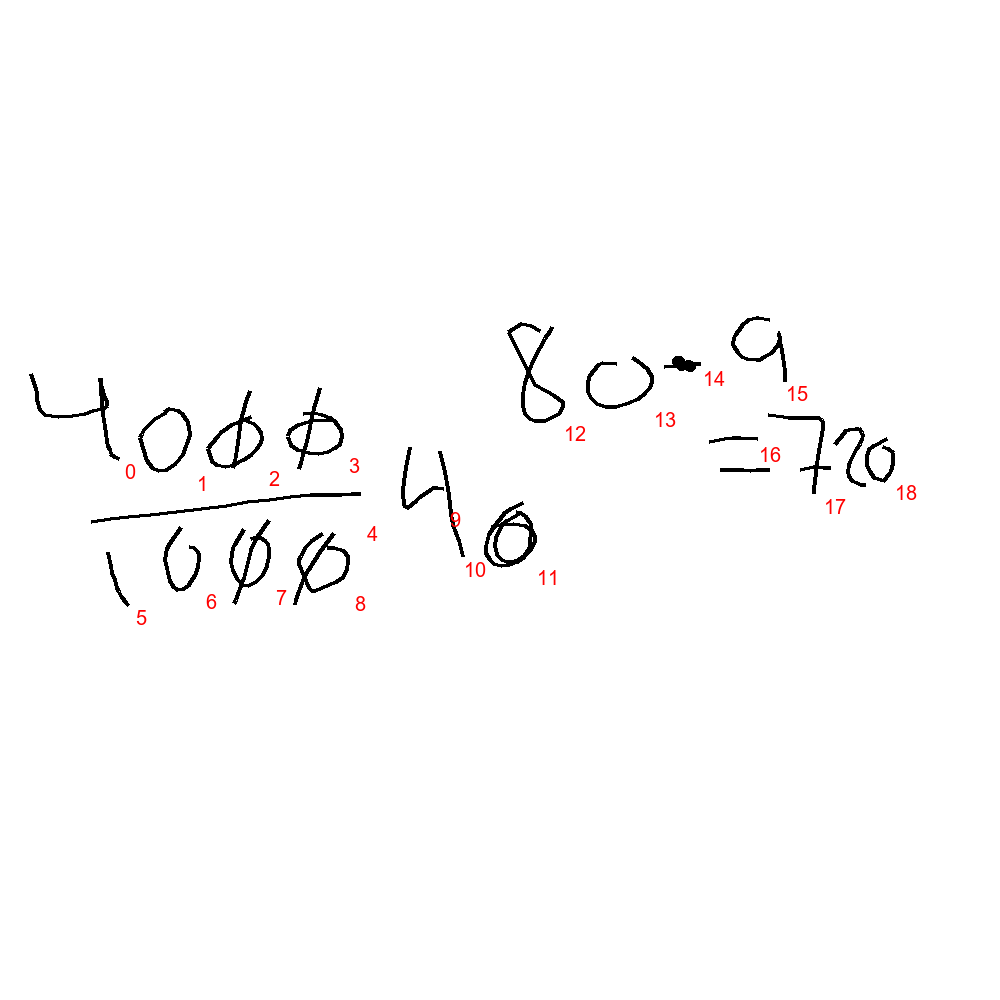 4000
1000
40
80·9
=720
0
1
2
3
4
5
6
7
8
9
10
11
12
13
14
15
16
17
18